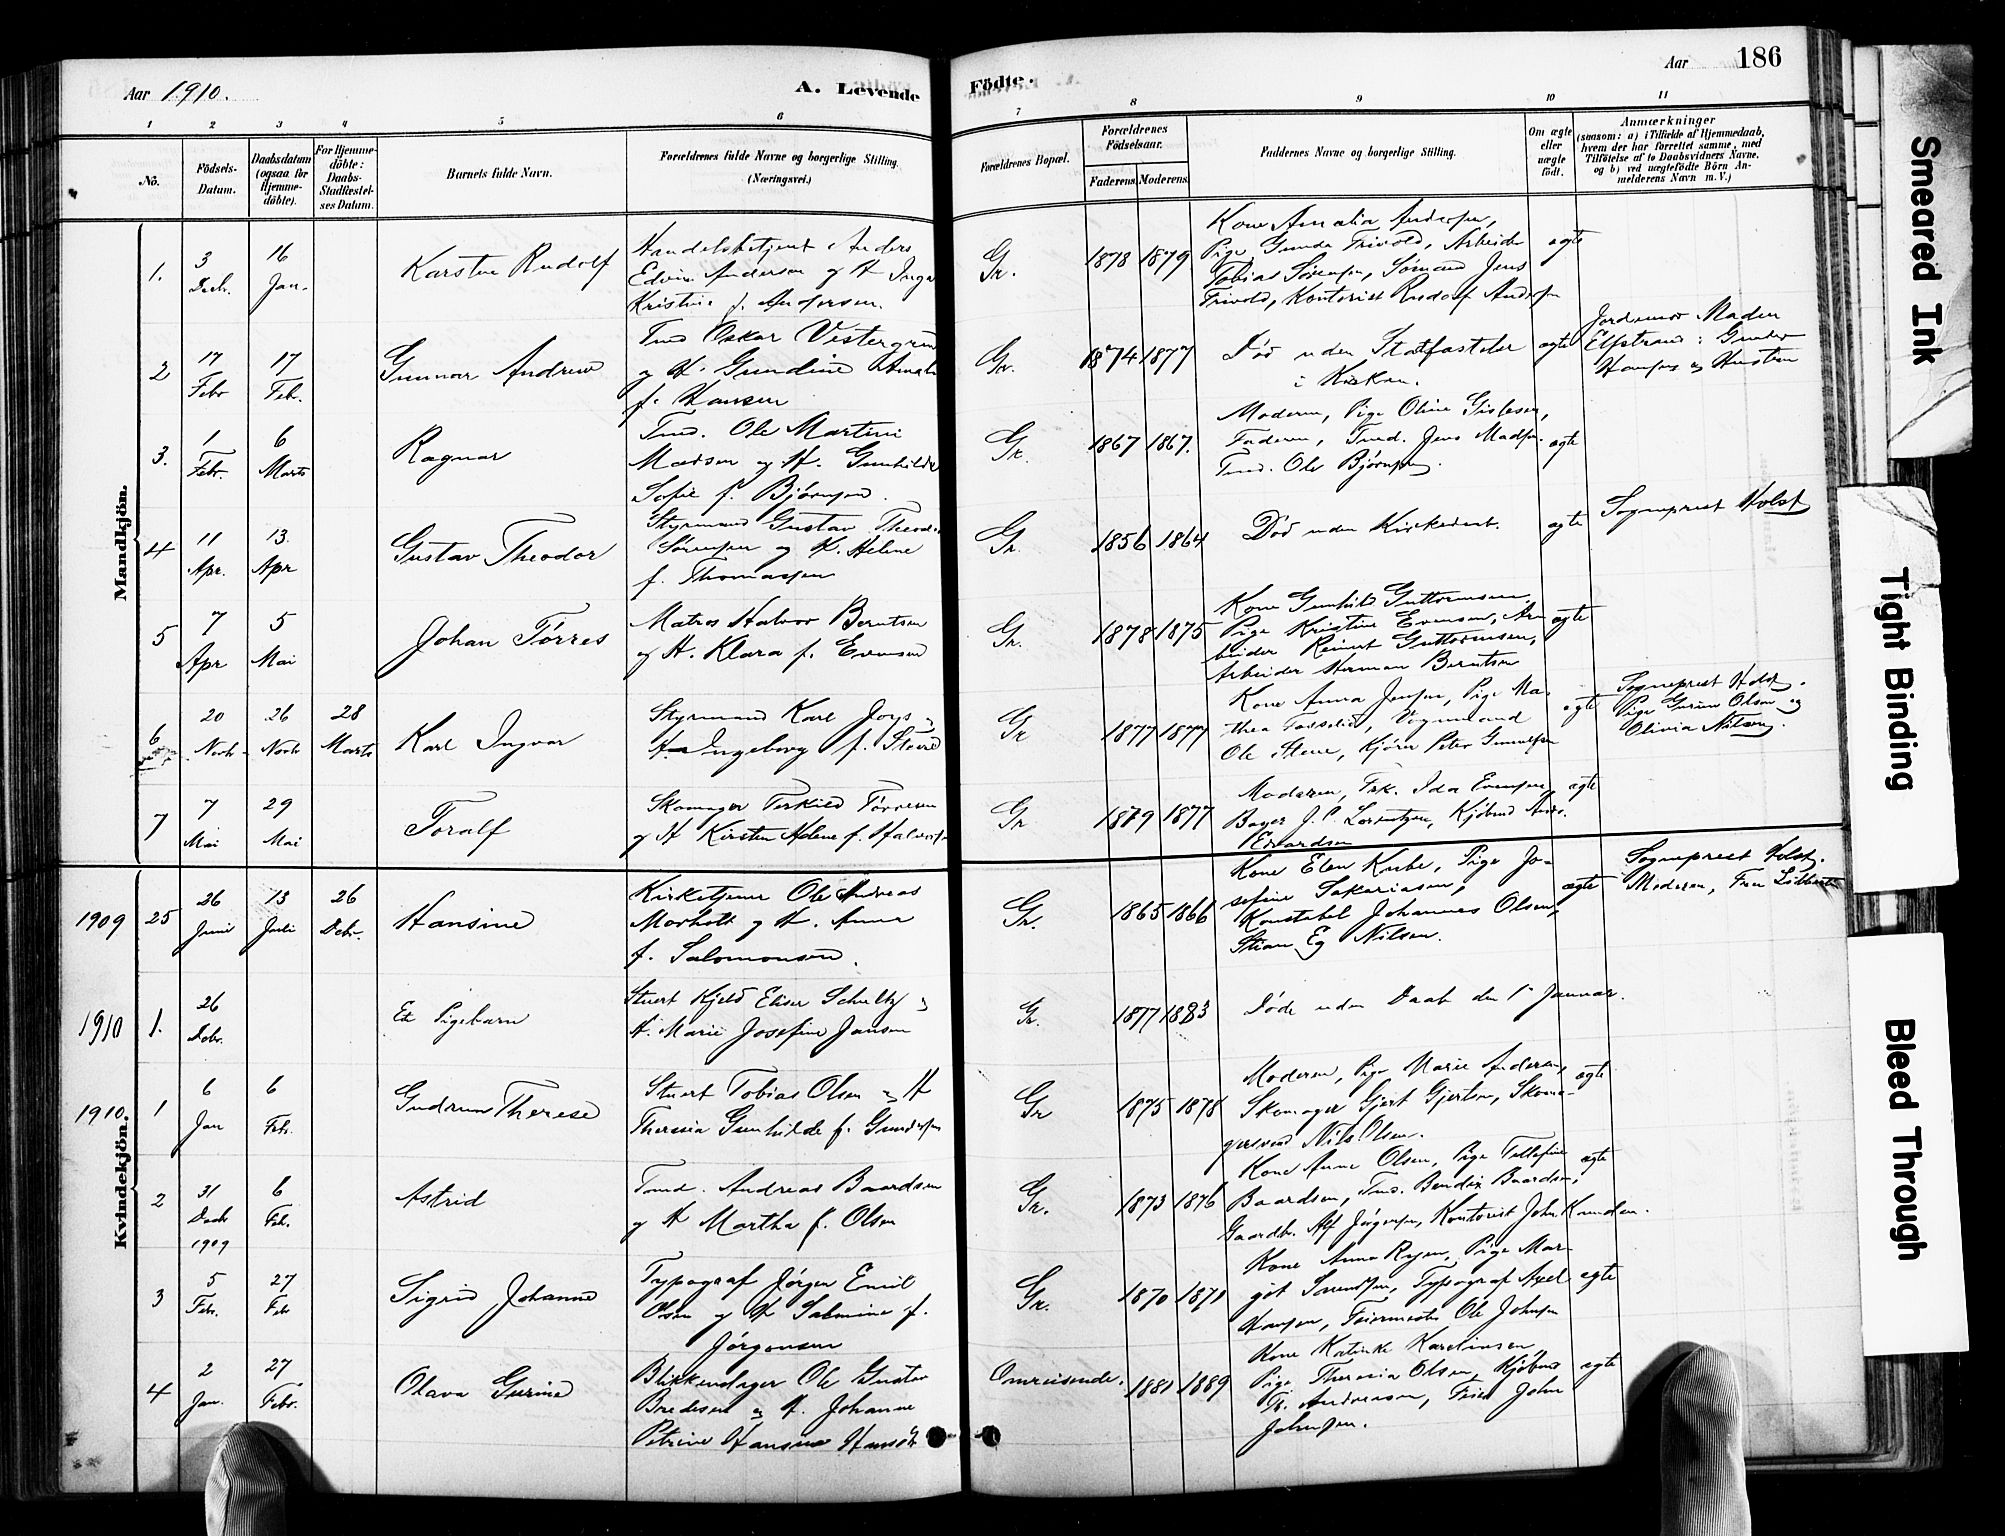 Aar 1910.
A. Levende
Födte.
Aar
186
1 2 3 4 5 6 7 8 9 10 11
No.
Födsels-
Datum.
Daabsdatum
(ogsaa for
Hjemme-
döbte).
For Hjemme-
döbte:
Daabs-
Stadfæstel-
ses Datum.
Barnets fulde Navn.
Forældrenes fulde Navne og borgerlige Stilling.
(Næringsvei.)
Forældrenes Bopæl.
Forældrenes
Födselsaar.
Faderens. Moderens.
Faddernes Navne og borgerlige Stilling.
Om ægte
eller
uægte
födt.
Anmærkninger
(saasom: a) i Tilfælde af Hjemmedaab,
hvem der har forrettet samme, med
Tilföielse af to Daabsvidners Navne.
og b) ved uægtefödte Börn An-
melderens Navn m. V.)
Mandkjön.
1. 3 Decb. 16 Jan.
Karsten Rudolf
Handelsbetjent Anders
Edvin Andersen og H Inga
Kristine f. Andersen.
Gr. 1878 1879
Kone Amalia Andersen,
Pige Gunda Trivold, Arbeider
Tobias Sørensen, Sømand Jens
Trivold, Kontorist Rudolf Andersen
ægte
2 17 Febr 17 Feb.
Gunnar Andrew
Tmd Oskar Vestergren
og H. Gundine Amalie
f. Hansen
Gr. 1874 1877
Død uden Stadfæstelse
i Kirken.
ægte
Jordemor Madm
Elfstrand: Gunder
Hansen og Hustru
3. 1 Febr. 6 Marts
Ragnar
Tmd. Ole Martin
Madsen og H. Gunhilde
Sofie f. Bjørnsen.
Gr. 1867 1867.
Moderen, Pige Oline Gislesen,
Faderen, Tmd. Jens Madsen
Tmd. Ole Bjørnsen.
ægte
4 11 Apr. 13. Apr
Gustav Theodor
Styrmand Gustav Theodor
Sørensen og H. Helene
f. Thomassen
Gr. 1856 1864
Død uden Kirkedaab.
ægte
Sogneprest Holst
5 7 Apr 5 Mai
Johan Tørres
Matros Halvor Berntsen
og H. Klara f. Evensen
Gr. 1878 1875
Kone Gunhild Guttormsen
Pige Kristine Evensen, Ar-
beider Reinert Guttormsen,
Arbeider Herman Berntsen
ægte
6 20 Novb. 26 Novb 28 Marts
Karl Ingvar
Styrmand Karl
H Ingeborg f.
Gr 1877 1877
Kone Anna Jensen, Pige Ma-
thea, Vognmand
Ole, Kjører Peter Gunnufsen
ægte
Sogneprest Holst.
Pige Gurine Olsen og
Olivia Nilsen
7 7 Mai 29 Mai
Toralf
Skomager Terkild Tørresen
og H Kirsten Helene f. Halvorsen
Gr 1879 1877
Moderen, Frk. Ida Evensen,
Bager J. C. Lorentzen, Kjøbmd Andr.
Edvardsen
ægte
1909 25 26 Juni 13 Juli 26 Debr.
Hansine
Kirketjener Ole Andreas
Morholt og H. Anna
f. Salomonsen.
Gr. 1865 1866
Kone Elen Kube, Pige Jo-
sefine Sakariasen,
Konstabel Johannes Olsen,
Stian Eg Nilsen.
ægte
Sogneprest Holst.
Moderen, Fru
1910 1. 26 Debr.
Et Pigebarn
Stuert Kjeld Elisar Schultz og
H. Marie Josefine Jansen
Gr. 1877 1883
Døde uden Daab den 1ste Januar.
Kvindekjön.
1910. 1 6 Jan 6 Feb.
Gudrun Therese
Stuert Tobias Olsen og H
Theresia Gunhilde f. Gundersen
Gr 1875 1878
Moderen, Pige Marie Andersen,
Skomager Gjert Gjertsen, Skoma-
gersvend Nils Olsen.
ægte
2 31 Decb 1909 6 Feb.
Astrid
Tmd. Andreas Baardsen
og H Martha f. Olsen
Gr. 1873 1876
Kone Anne Olsen, Pige Tellefine
Baardsen, Tmd. Bendix Baardsen,
Gaardbr. Alf Jørgensen, Kontorist John Knudsen.
ægte
3 5 Feb. 27 Feb
Sigrid Johanne
Typograf Jørgen Emil
Olsen og H Salmine f.
Jørgensen
Gr. 1870 1871
Kone Anna Ryen, Pige Mar-
got Svendsen, Typograf Axel
Hansen, Feiermester Ole Johnsen
ægte
4 2 Jan. 27 Febr.
Olava Gurine
Blikkenslager Ole Gustav
Bredesen og H. Johanne
Petrine Hansine
Omreisende. 1881 1889
Kone Katinka Karelinsen,
Pige Theresia Olsen, Kjøbmd
Th. Andreasen, Fisker John
Johnsen.
ægte
Smeared Ink
Tight Binding
Bleed Through